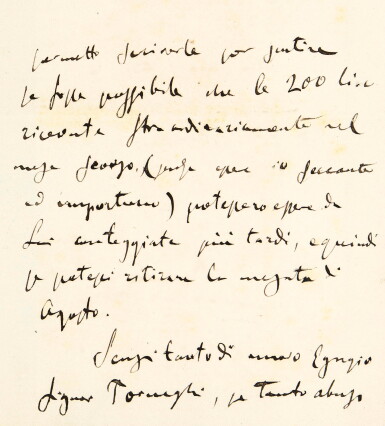 permetto scriverle per sentire
se fosse possibile che le 200 lire
ricevute straordinariamente nel
mese scorso, (forse ero io seccante
ed importuno) potessero essere da
Lei conteggiate più tardi, e quindi
se potessi ritirare la mesata di
Agosto.
Scusi tanto di nuovo Egregio
Signor Tornaghi, se tanto abuso